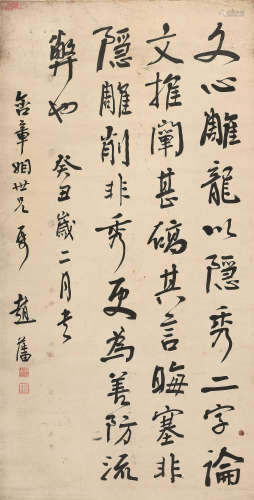 文心雕龍以隱秀二字論
文推闡甚碻其言晦塞非
隱雕削非秀更為善防流
弊也 癸丑歲二月書
含章姻世兄屬 趙藩